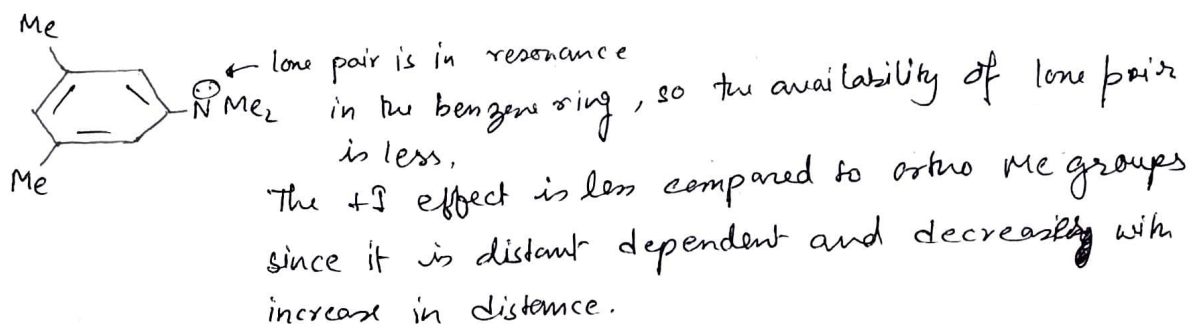 Me
Me
N̈Me₂
← lone pair is in resonance
in the benzene ring, so the availability of lone pair
is less,
The +I effect is less compared to ortho Me groups
since it is distant dependent and decreasing with
increase in distance.